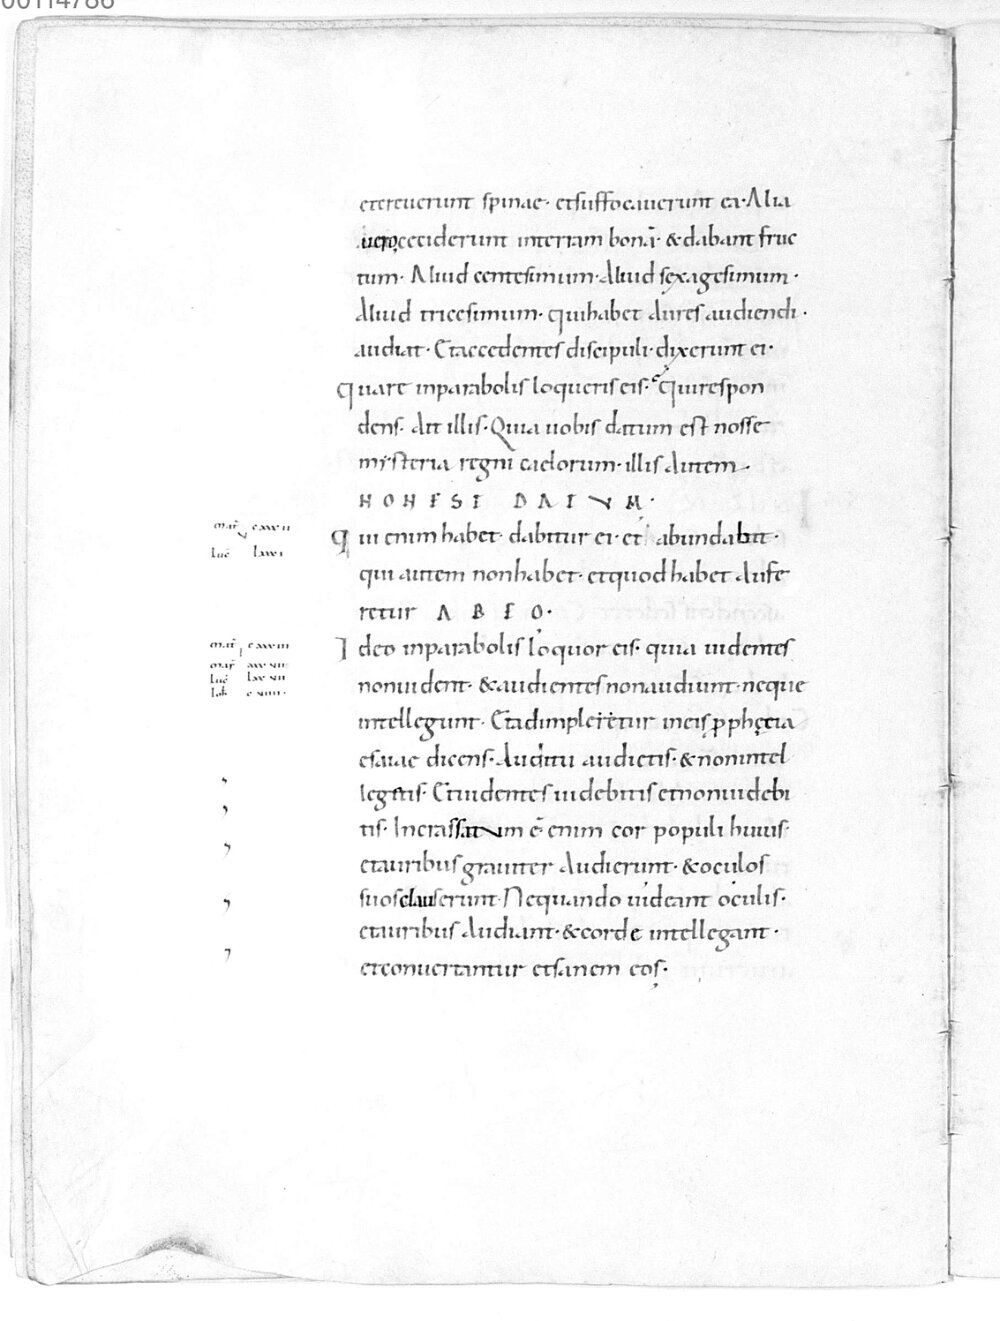 00114786
etcreuerunt spinae· etsuffocauerunt ea· Alia
uero ceciderunt interram bonā· & dabant fruc
tum· Aliud centesimum· Aliud sexagesimum·
Aliud tricesimum· quihabet Aures audiendi·
audiat· Etaccedentes discipuli· dixerunt ei·
quare inparabolis loqueris eis· quirespon
dens· Ait illis· Quia uobis datum est nosse
mysteria regni caelorum· illis Autem·
NON EST DATUM·
Qui enim habet· dabitur ei· et abundabit·
qui autem nonhabet· etquod habet Aufe
retur AB EO·
Ideo inparabolis loquor eis· quia uidentes
nonuident· & audientes nonaudiunt· neque
intellegunt· Etadimpleretur ineis ꝓphetia
esaiae dicens· Auditu audietis· & nonintel
legetis· Etuidentes uidebitis etnonuidebi
tis· Incrassatum ē enim cor populi huius·
etauribus grauiter Audierunt· & oculos
suos clauserunt· Nequando uideant oculis·
etauribus Audiant· & corde intellegant·
etconuertantur etsanem eos·